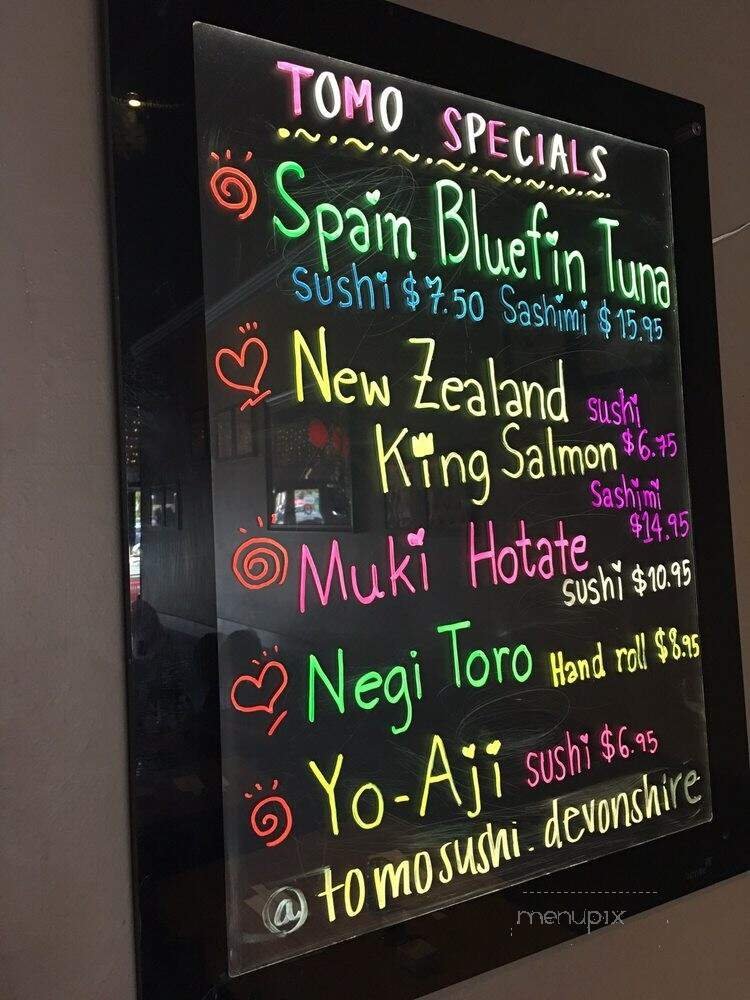 TOMO SPECIALS
Spain Bluefin Tuna
sushi $7.50 Sashimi $15.95
New Zealand
King Salmon
sushi
$6.75
Sashimi
$14.95
Muki Hotate
sushi $10.95
Negi Toro Hand roll $8.95
Yo-Aji sushi $6.95
@tomosushi.devonshire
menupix